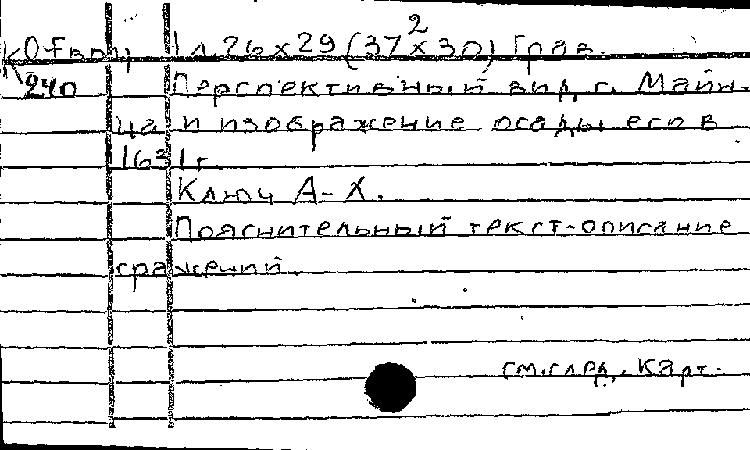 2
К Offвпч 1 л. 26 x 29 (37 x 30) Грав.
240 Перспективный вид г. Майн-
ца и изображение осады его в
1631 г.
Ключ А-Х.
Пояснительный текст-описание
сражений.
см. след. карт.